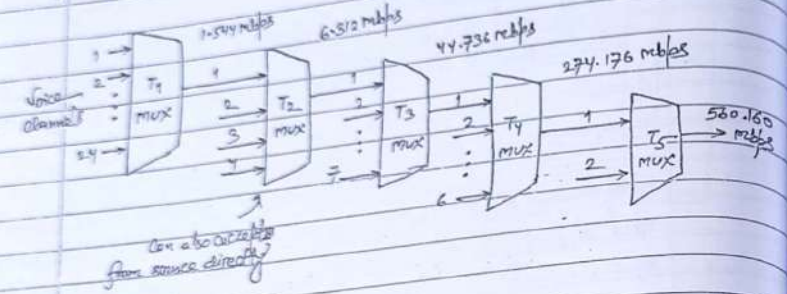 1.544 mbps
6.312 mbps
44.736 mbps
274.176 mbps
560.160 mbps
Voice channels
1
2
24
T1 MUX
1
2
3
4
T2 MUX
1
2
7
T3 MUX
1
2
6
T4 MUX
1
2
T5 MUX
Can also accept
from source directly